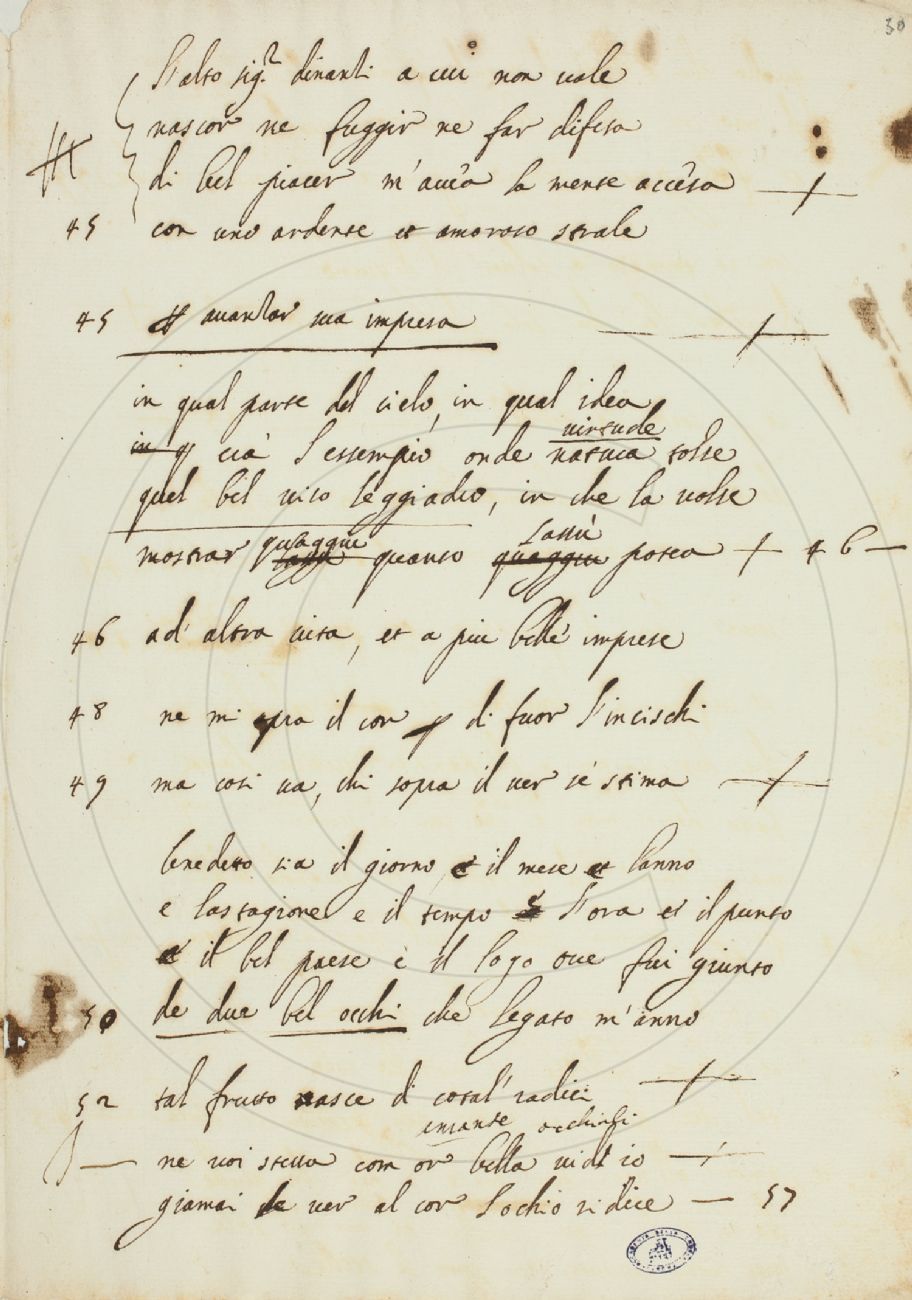 30
L'alto sig.r dinanzi a cui non vale
nascor ne fuggir ne far difesa
di bel piacer m'avea la mente accesa
45 con uno ardente et amoroso strale
45 avanzar sua impresa
in qual parte del cielo, in qual idea
virtude
in q era l'essempio onde natura tolse
quel bel viso leggiadro, in che la volse
quaggiu lassù
mostrar quanto quaggiu potea 46
46 ad altra vita, et a piu belle imprese
48 ne mi pra il cor p di fuor l'incischi
49 ma cosi va, chi sopra il ver s'estima
benedetto sia il giorno e il mese et lanno
e lastagione e il tempo e l'ora et il punto
et il bel paese e il logo ove fui giunto
50 de due bel occhi che legato m'anno
52 tal frutto nasce di cotal' radici
occhinfi
ne voi stessa com or bella vidd io
giamai de ver al cor lochio ridice 57